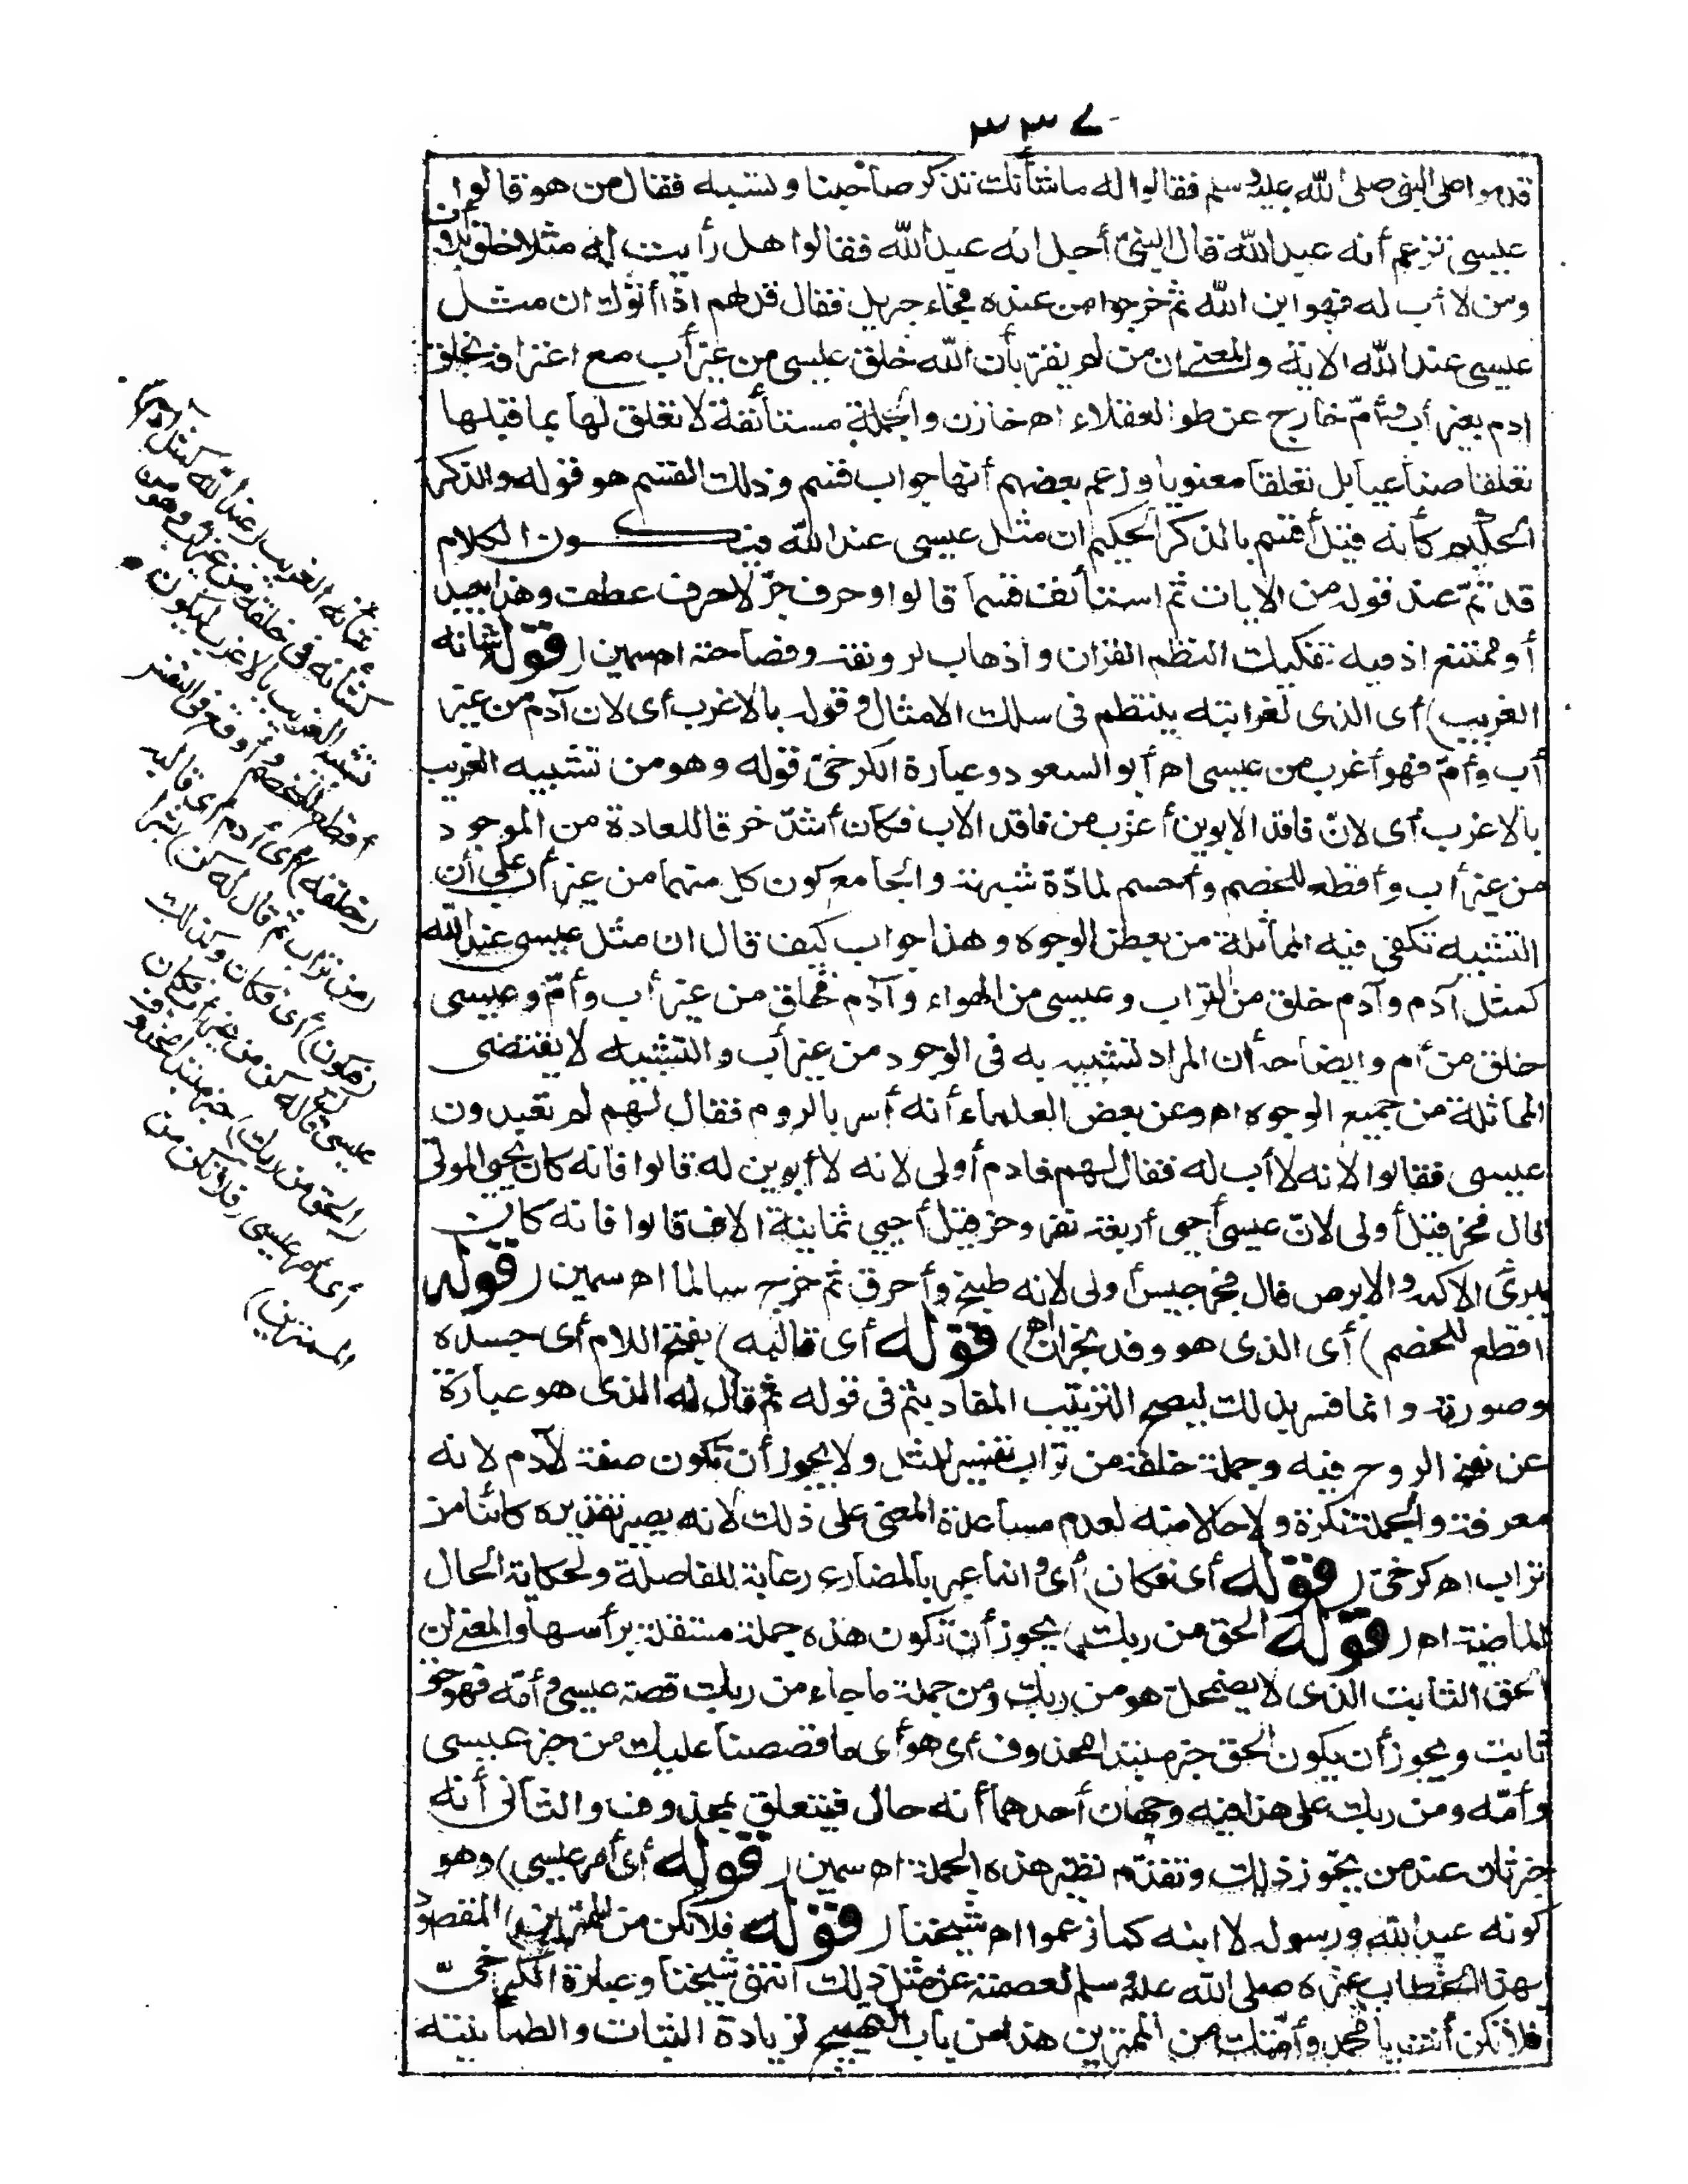 ٣٣٧
قدموا على النبي صلى الله عليه وسلم فقالوا له ما شأنك تذكر صاحبنا وتسبه فقال من هو قالوا
عيسى تزعم أنه عبد الله قال النبي أجل انه عبد الله فقالوا هل رأيت له مثلا خلق
ومن لا أب له فهو ابن الله ثم خرجوا من عنده فجاء جبريل فقال قل لهم اذا أتوك ان مثل
عيسى عند الله الاية والمعنى ان من لم يقر بأن الله خلق عيسى من غير أب مع اعترافه بخلق
ادم بغير أب وأم خارج عن طور العقلاء اه خازن والجملة مستأنفة لا تعلق لها بما قبلها
تعلقا صناعيا بل تعلقا معنويا وزعم بعضهم أنها جواب قسم وذلك القسم هو قوله والذكر
الحكيم كأنه قيل أقسم بالذكر الحكيم ان مثل عيسى عند الله فيكون الكلام
قد تم عند قوله من الايات ثم استأنف قسما قالوا وحرف جر لا حرف عطف وهذا بعيد
أو ممتنع اذ فيه تفكيك النظم القران واذهاب لرونقه وفصاحته اه سمين (قوله شانه
الغريب) أى الذى لغرابته ينتظم فى سلك الامثال وقوله بالاغرب أى لان آدم من غير
أب وأم فهو أغرب من عيسى اه أبو السعود وعبارة الكرخى قوله وهو من تشبيه الغريب
بالاغرب أى لان فاقد الابوين أغرب من فاقد الاب فكان أشد خرقا للعادة من الموجود
من غير أب وأقطع للخصم وأحسم لمادة شبهته والجامع كون كل منهما من غير أب على أن
التشبيه تكفى فيه المماثلة من بعض الوجوه وهذا جواب كيف قال ان مثل عيسى عند الله
كمثل آدم وآدم خلق من التراب وعيسى من الهواء وآدم خلق من غير أب وأم وعيسى
خلق من أم وايضاحه أن المراد تشبيهه به فى الوجود من غير أب والتشبيه لا يقتضى
المماثلة من جميع الوجوه اه وعن بعض العلماء أنه أسر بالروم فقال لهم لم تعبدون
عيسى فقالوا لانه لا أب له فقال لهم فادم أولى لانه لا أبوين له قالوا فانه كان يحيى الموتى
قال فحزقيل أولى لان عيسى أحيى أربعة نفر وحزقيل أحيى ثمانية الاف قالوا فانه كان
يبرئ الاكمه والابرص قال فجرجيس أولى لانه طبخ وأحرق ثم خرج سالما اه سمين (قوله
اقطع للخصم) أى الذى هو وفد نجران اه (قوله أى قالبه) بفتح اللام أى جسده
وصورته وانما فسر بذلك ليصح الترتيب المفاد بثم فى قوله ثم قال له الذى هو عبارة
عن نفخ الروح فيه وجملة خلقه من تراب تفسير للمثل ولا يجوز أن تكون صفة لآدم لانه
معرفة والجملة نكرة ولا حالا منه لعدم مساعدة المعنى على ذلك لانه يصير تقديره كائنا من
تراب اه كرخى (قوله أى فكان) أى وانما عبر بالمضارع رعاية للفاصلة ولحكاية الحال
الماضية اه (قوله الحق من ربك) يجوز أن تكون هذه جملة مستقلة برأسها والمعنى ان
الحق الثابت الذى لا يضمحل هو من ربك ومن جملة ما جاء من ربك قصة عيسى وأمه فهو حق
ثابت ويجوز أن يكون الحق خبر مبتدا محذوف أى هو أى ما قصصنا عليك من خبر عيسى
وأمه ومن ربك على هذا فيه وجهان أحدهما أنه حال فيتعلق بمحذوف والثانى أنه
خبر ثان عند من يجوز ذلك وتقدم نظير هذه الجملة اه سمين (قوله أى أمر عيسى) وهو
كونه عبد الله ورسوله لا ابنه كما زعموا اه شيخنا (قوله فلا تكن من الممترين) المقصود
بهذا الخطاب غيره صلى الله عليه وسلم لعصمته عن مثل ذلك انتهى شيخنا وعبارة الكرخى
فلا تكن أنت يا محمد وأمتك من الممترين هذا من باب التهييج لزيادة الثبات والطمأنينة
شأنه الغريب (عند الله كمثل آدم)
كشأنه فى خلقه من غير أب وهو من
تشبيه الغريب بالاغرب ليكون
أقطع للخصم وأوقع فى النفس
(خلقه) أى أدم أى قالبه
(من تراب ثم قال له كن) بشرا
(فيكون) أى فكان وكذلك
عيسى قال له كن من غير أب فكان
(الحق من ربك) خبر مبتدا محذوف
أى أمر عيسى (فلا تكن من
الممترين)